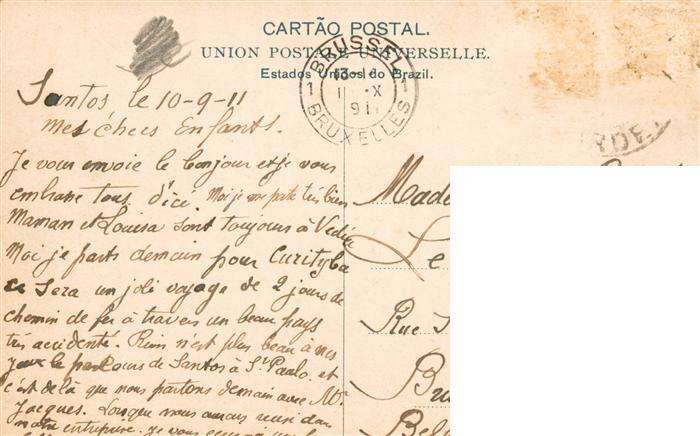 CARTÃO POSTAL.
UNION POSTALE UNIVERSELLE.
Estados Unidos do Brazil.
BRUSSEL
1 13-1 1
11 X
191
BRUXELLES
Santos le 10-9-11
Mes chers Enfants.
Je vous envoie le bonjour et je vous
embrasse tous d'ici. Moi je me porte très bien
Maman et Louisa sont toujours à
Moi je parts demain pour Curityba
ce sera un joli voyage de 2 jours de
chemin de fer à travers un beau pays
très accidenté. Rien n'est plus beau à mes
yeux le parcours de Santos à St Paulo. et
c'est de là que nous partons demain avec Mr
Jacques. Lorsque nous aurons reussi dans
notre entreprise. je vous
Made
Le
Rue
Bru
Belg